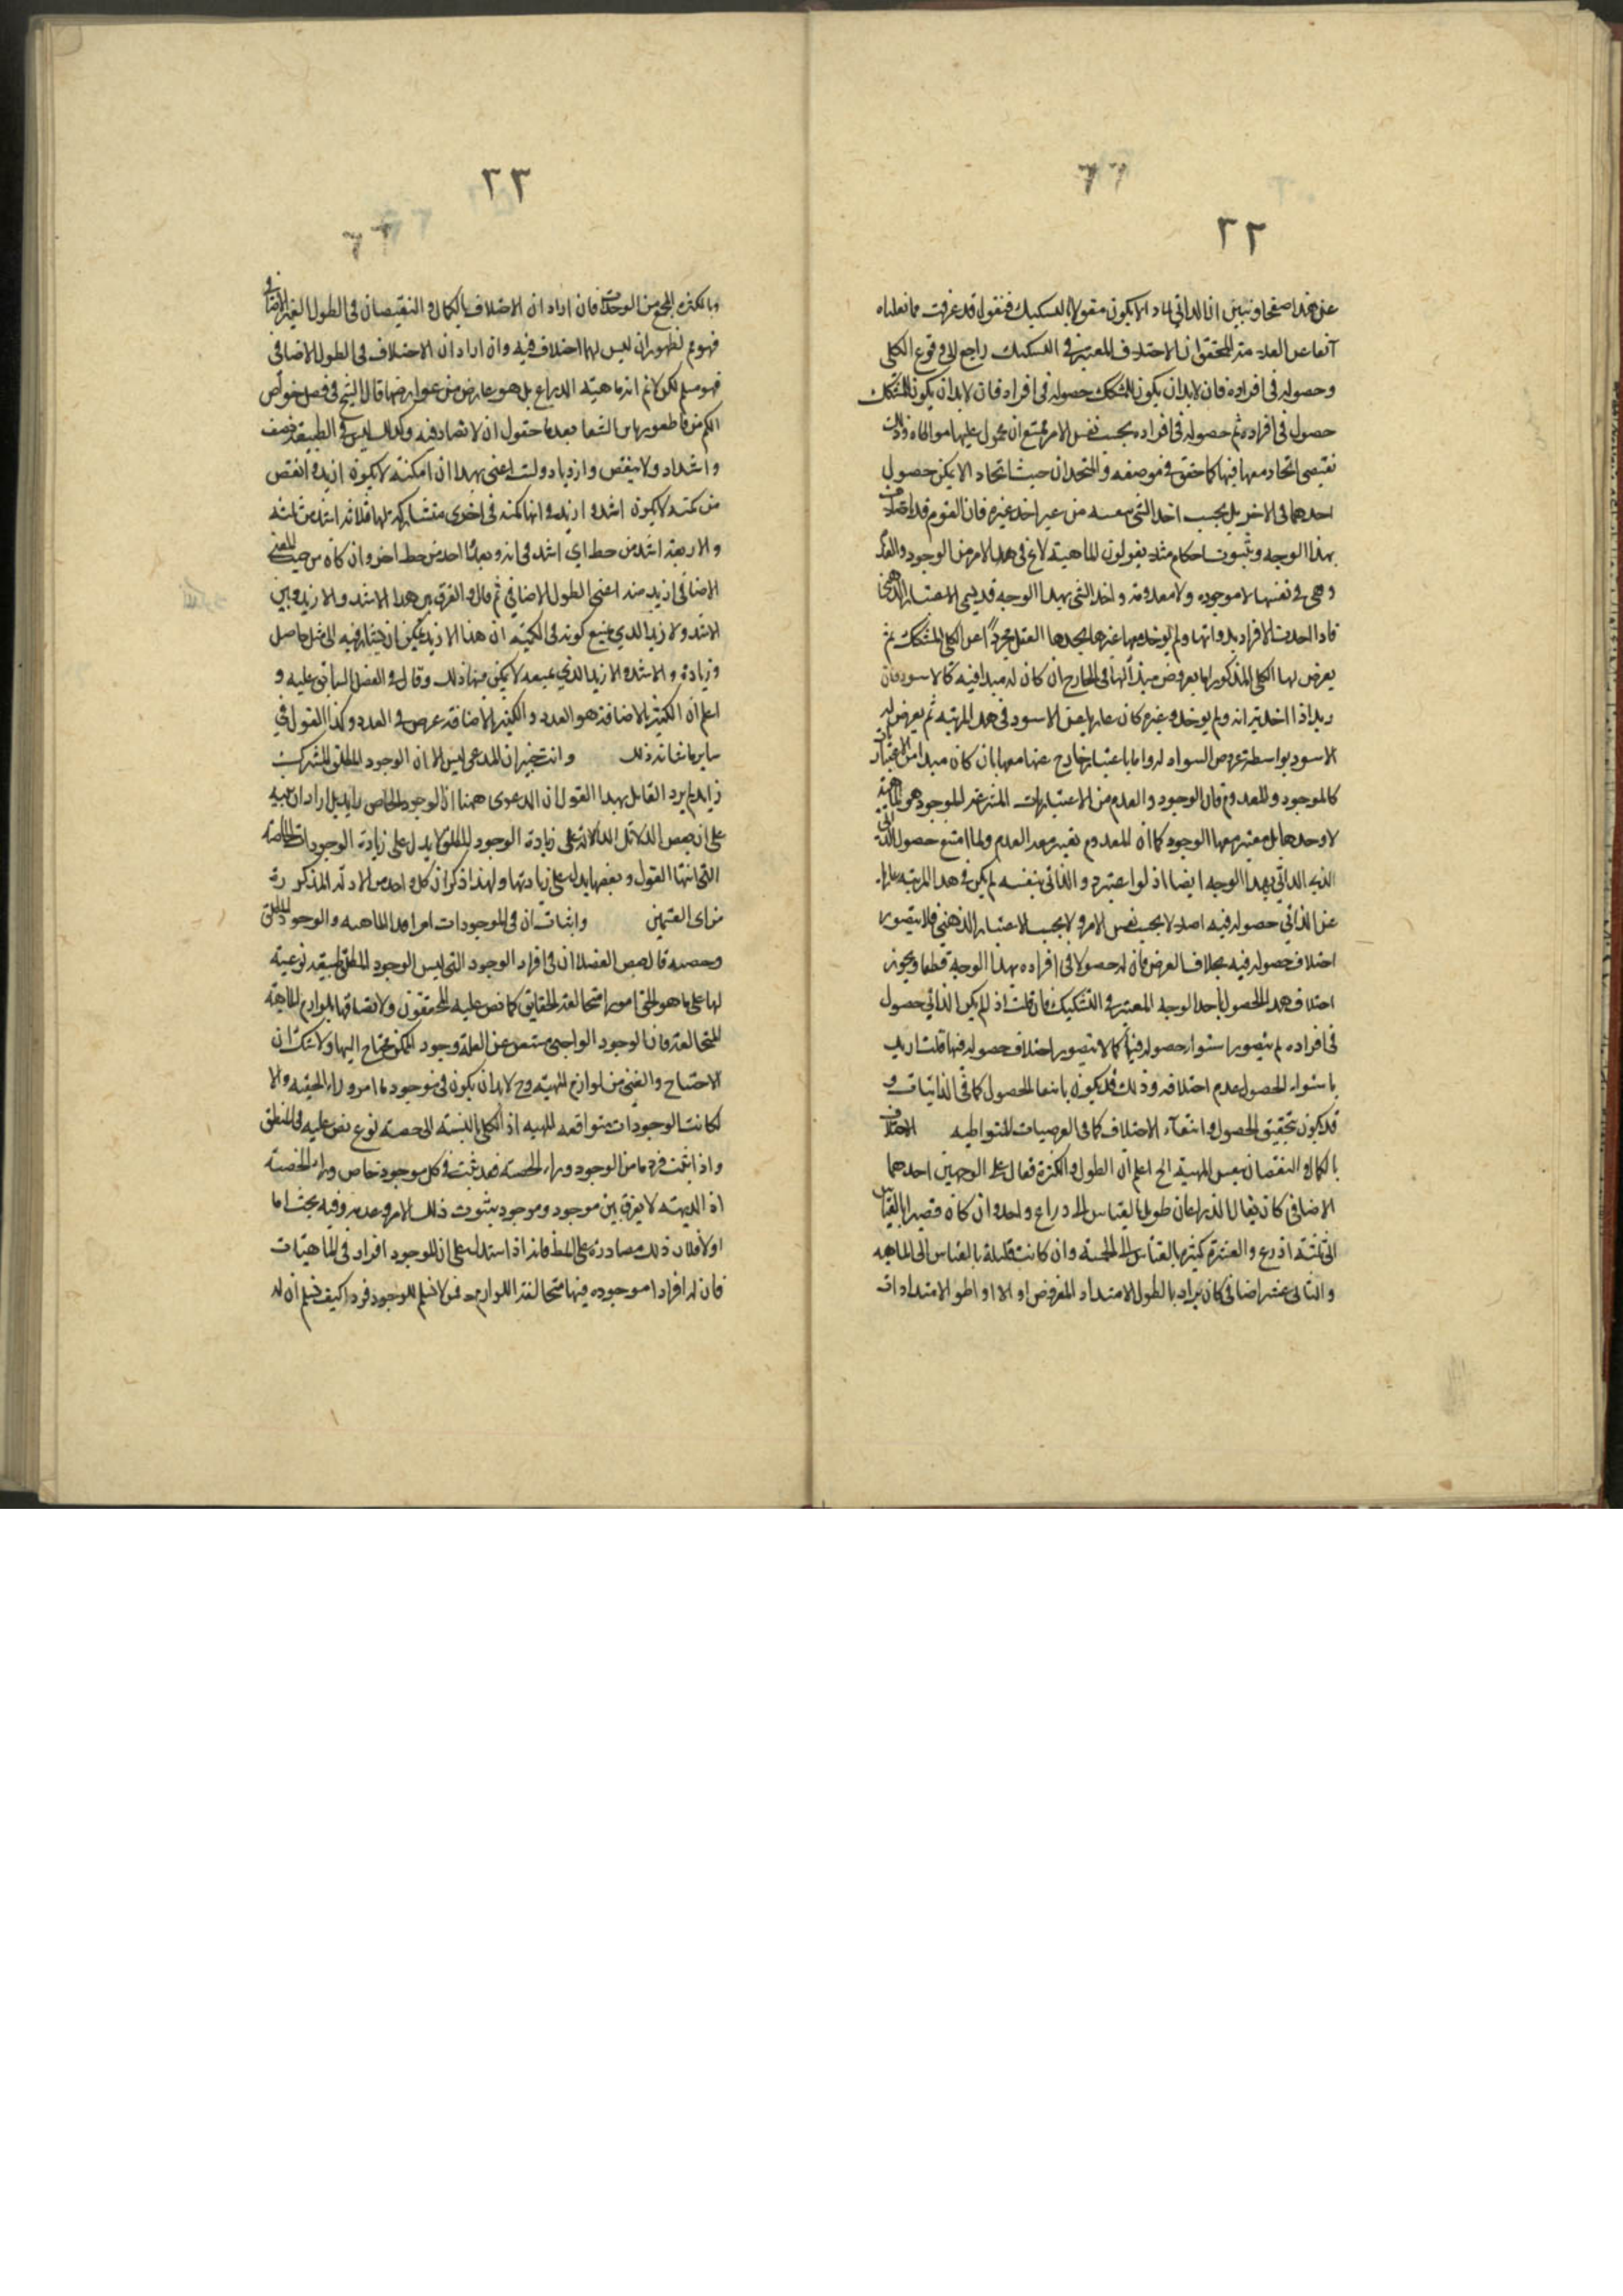 ٢٢
عن هذا صفحا ونبين ان الذاتي لماذا لا يكون مقولا بالتشكيك فنقول قد عرفت مما نقلناه
آنفا عن العلامة المحقق ان الاختلاف المعتبر في التشكيك راجع الى وقوع الكلي
وحصوله في افراده فان لابد ان يكون للمشكك حصوله في افراده فان لابد ان يكون للمشكك
حصول في افراده ثم حصوله في افراده بحسب نفس الامر يمتنع ان محمول عليها مواطاة وذلك
يقتضي اتحاده معها فيها كما حقق في موضعه والمتحدان حيث اتحاد لا يمكن حصول
احدهما في الاخر بل بحسب اخذ الشي نفسه من غير اخذ غيره فان القوم قد
بهذا الوجه ويثبتون احكام مثلا يقولون الماهية لا في هذا الامر من الوجود والعدم
وهي في نفسها لا موجوده ولا معدومة واخذ الشي بهذا الوجه قد يسمي الاعتبار الذهني
فاذا اخذت الافراد بذواتها ولم يوخذ معها غيرها يجدها العقل مجردا عن الكلي المشكك ثم
يعرض لها الكلي المذكور اما بعروض مبدأ لها في الخارج ان كان له مبدا فيه كالاسود فان
زيدا اذا اخذ بذاته ولم يوخذ وغيره كان عاريا عن الاسود في هذه المرتبة ثم يعرض له
الاسود بواسطة عروض السواد له واما باعتبار خارج عنها معها بان كان مبدا من الاعتبارات
كالموجود والمعدوم فان الوجود والعدم من الاعتباريات المنتزعة للموجود هو الماهية
لا وحدها بل معتبر معها الوجود كما ان المعدوم يعتبر معه العدم ولما امتنع حصول
الذاتي بهذا الوجه ايضا اذ لو اعتبر والذاتي بنفسه لم يكن في هذا المرتبة عاريا
عن الذاتي حصوله فيه اصلا لا بحسب نفس الامر ولا بحسب الاعتبار الذهني فلا يتصور
اختلاف حصوله فيه بخلاف العرض فان له حصولا في افراده بهذا الوجه قطعا ويجوز
اختلاف هذا الحصول باحد الوجه المعتبر في التشكيك فان قلت اذ لم يكن الذاتي حصول
في افراده لم يتصور استواء حصوله فيها كما لا يتصور اختلاف حصوله فيها قلت اريد
باستواء الحصول عدم اختلافه وذلك قد يكون بانتفا الحصول كما في الذاتيات و
قد يكون بتحقيق الحصول وانتفاء الاختلاف كما في العرضيات المتواطيه الاختلاف
بالكمال والنقصان بنفس المهية الخ اعلم ان الطول والكثرة تقال على الوجهين احدهما
الاضافي كان يقال الذراعان طويل بالقياس الى ذراع واحد وان كان قصيرا بالقياس
الى ثلثة اذرع والعشرة كثيرة بالقياس الى الخمسة وان كانت قليلة بالقياس الى المايه
والثاني غير اضافي كان يراد بالطول الامتداد المفروض اولا او اطول الامتدادات
٢٣
وبالكثرة المجتمع من الوحدات فان اراد ان الاختلاف بالكمال والنقصان في الطول الغير الاضافي
فهو مم لظهور ان ليس لهما اختلاف فيه وان اراد ان الاختلاف في الطول الاضافي
فهو مسلم لكن لا نم انه ماهية الذراع بل هو عارض من عوارضها قال الشيخ في فصل خواص
الكم من قاطيغورياس الشفا بعد ما حقول ان لا تضاد فيه وكذلك ليس في الطبيعة ضعف
واشتداد ولا ينقص وازدياد ولست اعني بهذا ان امكنته لا يكون ازيد وانقص
من كمية لا يكون اشد وازيد في انها كمية في اخرى متشاركة لها فلا ثلاثة اشد من ثلثة
ولا اربعة اشد من خط اي اشد في انه ذو بعد احد من خط اخر وان كان من حيث المعنى
الاضافي ازيد منه اعني الطول الاضافي ثم قال والفرق بين هذا الاشد والازيد وبين
الاشد والازيد الذي يمنع كونه في الكمية ان هذا الازيد يمكن ان يشار فيه الى مثل حاصل
وزيادة والاشد والازيد الذي نمنعه لا يمكن فيها ذلك وقال في الفصل السابق عليه و
اعلم ان الكثير بلا اضافة هو العدد والكثير بالاضافة عرض في العدد وكذا القول في
ساير ما شانه ذلك وانت خبير ان المدعى ليس الا ان الوجود المطلق المشترك
زايد لم يرد القايل بهذا القول ان الدعوى ههنا ان الوجود الخاص زايد بل اراد ان ينبه
على ان بعض الدلائل الدالة على زيادة الوجود المطلق لا يدل على زيادة الوجودات الخاصة
التي انتها القول وبعضها يدل على زيادتها ولهذا ذكر ان كل واحد من الادلة المذكورة
من اي القسمين واثبات ان في الموجودات امرا عدا الماهية والوجود المطلق
وحصته قال بعض الفضلا ان في افراد الوجود التي ليس الوجود المطلق طبيعة نوعية
لها على ما هو الحق امورا متخالفة الحقايق كما نص عليه المحققون ولاتصافها بلوازم الماهية
المتخالفة فان الوجود الواجبي مستغن عن العلة ووجود الممكن محتاج اليها ولا شك ان
الاحتياج والغنى من لوازم المهية وح لابد ان يكون في موجود ما امر وراء الحصة والا
لكانت الوجودات متوافقة المهية اذ الكلي بالنسبة الى حصته نوع نص عليه في المنطق
واذا ثبت فرد ما من الوجود وراء الحصة فقد ثبت في كل موجود خاص وراء الحصة
اذ البديهة لا يفرق بين موجود وموجود بثبوت ذلك الامر وعدمه وفيه بحث اما
اولا فلان ذلك مصادرة على المط فانه اذا استدل على ان للموجود افراد في الماهيات
فان له افرادا موجوده فيها متخالفة اللوازم فمن لا يسلم للوجود فردا كيف يسلم ان له